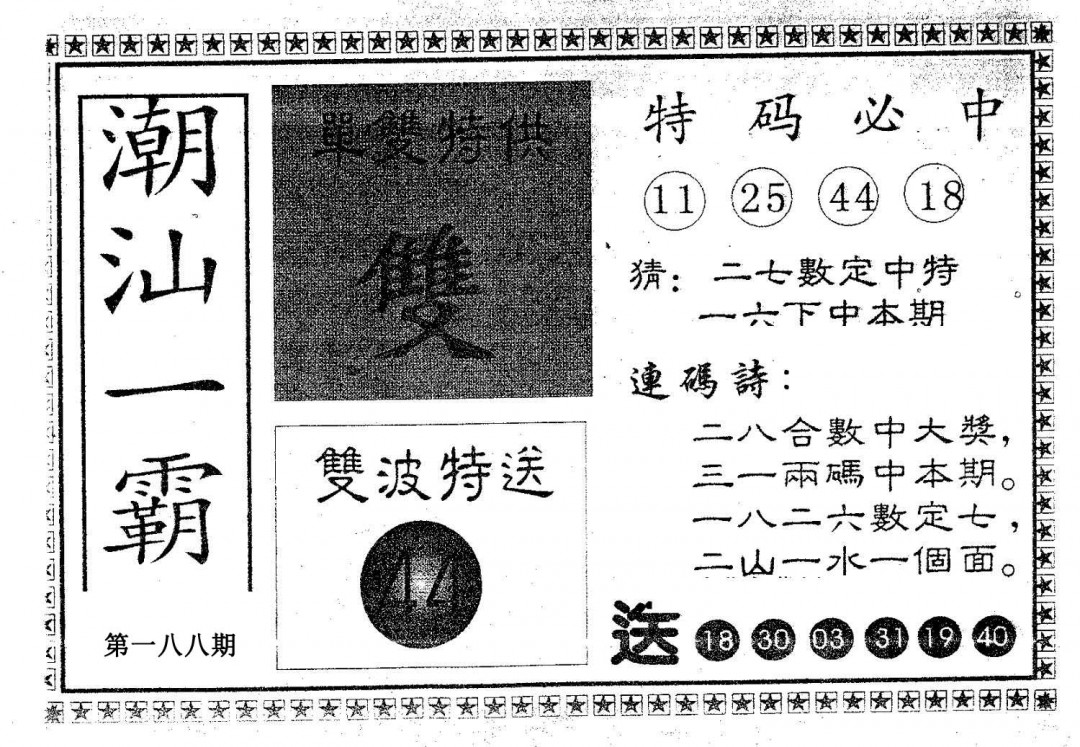 潮汕一霸
第一八八期
單雙特供
雙
雙波特送
44
特码必中
11 25 44 18
猜：二七數定中特
一六下中本期
連碼詩：
二八合數中大獎，
三一兩碼中本期。
一八二六數定七，
二山一水一個面。
送 18 30 03 31 19 40